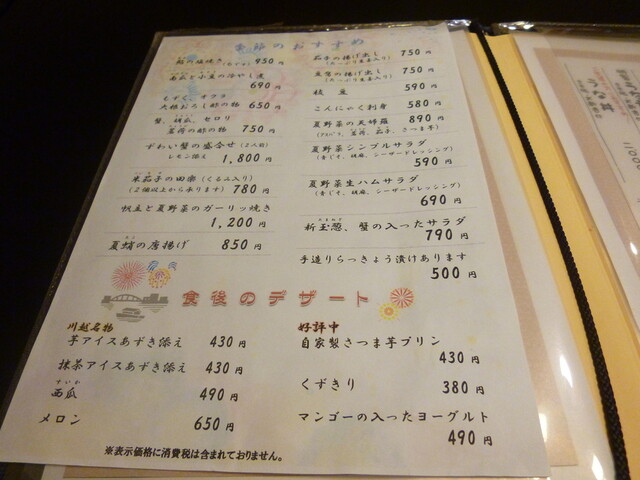 季節のおすすめ
鮎の塩焼き 950円
あわと小豆の冷やし煮
690円
もずく、オクラ
大根おろし酢の物 650円
蟹、胡瓜、セロリ
茗荷の酢の物 750円
ずわい蟹の盛合せ(2人前)
レモン添え 1,800円
米茄子の田楽(くるみ入り)
(2個以上から承ります) 780円
帆立と夏野菜のガーリック焼き
1,200円
夏蛸の唐揚げ 850円
茄子の揚げ出し 750円
豆腐の揚げ出し 750円
枝豆 590円
こんにゃく刺身 580円
夏野菜の天婦羅 890円
夏野菜シンプルサラダ
(青じそ、胡麻、シーザードレッシング)
590円
夏野菜生ハムサラダ
(青じそ、胡麻、シーザードレッシング)
690円
新玉葱、蟹の入ったサラダ
790円
手造りらっきょう漬けあります
500円
食後のデザート
川越名物
芋アイスあずき添え 430円
抹茶アイスあずき添え 430円
すいか
西瓜 490円
メロン 650円
好評中
自家製さつま芋プリン
430円
くずきり 380円
マンゴーの入ったヨーグルト
490円
※表示価格に消費税は含まれておりません。